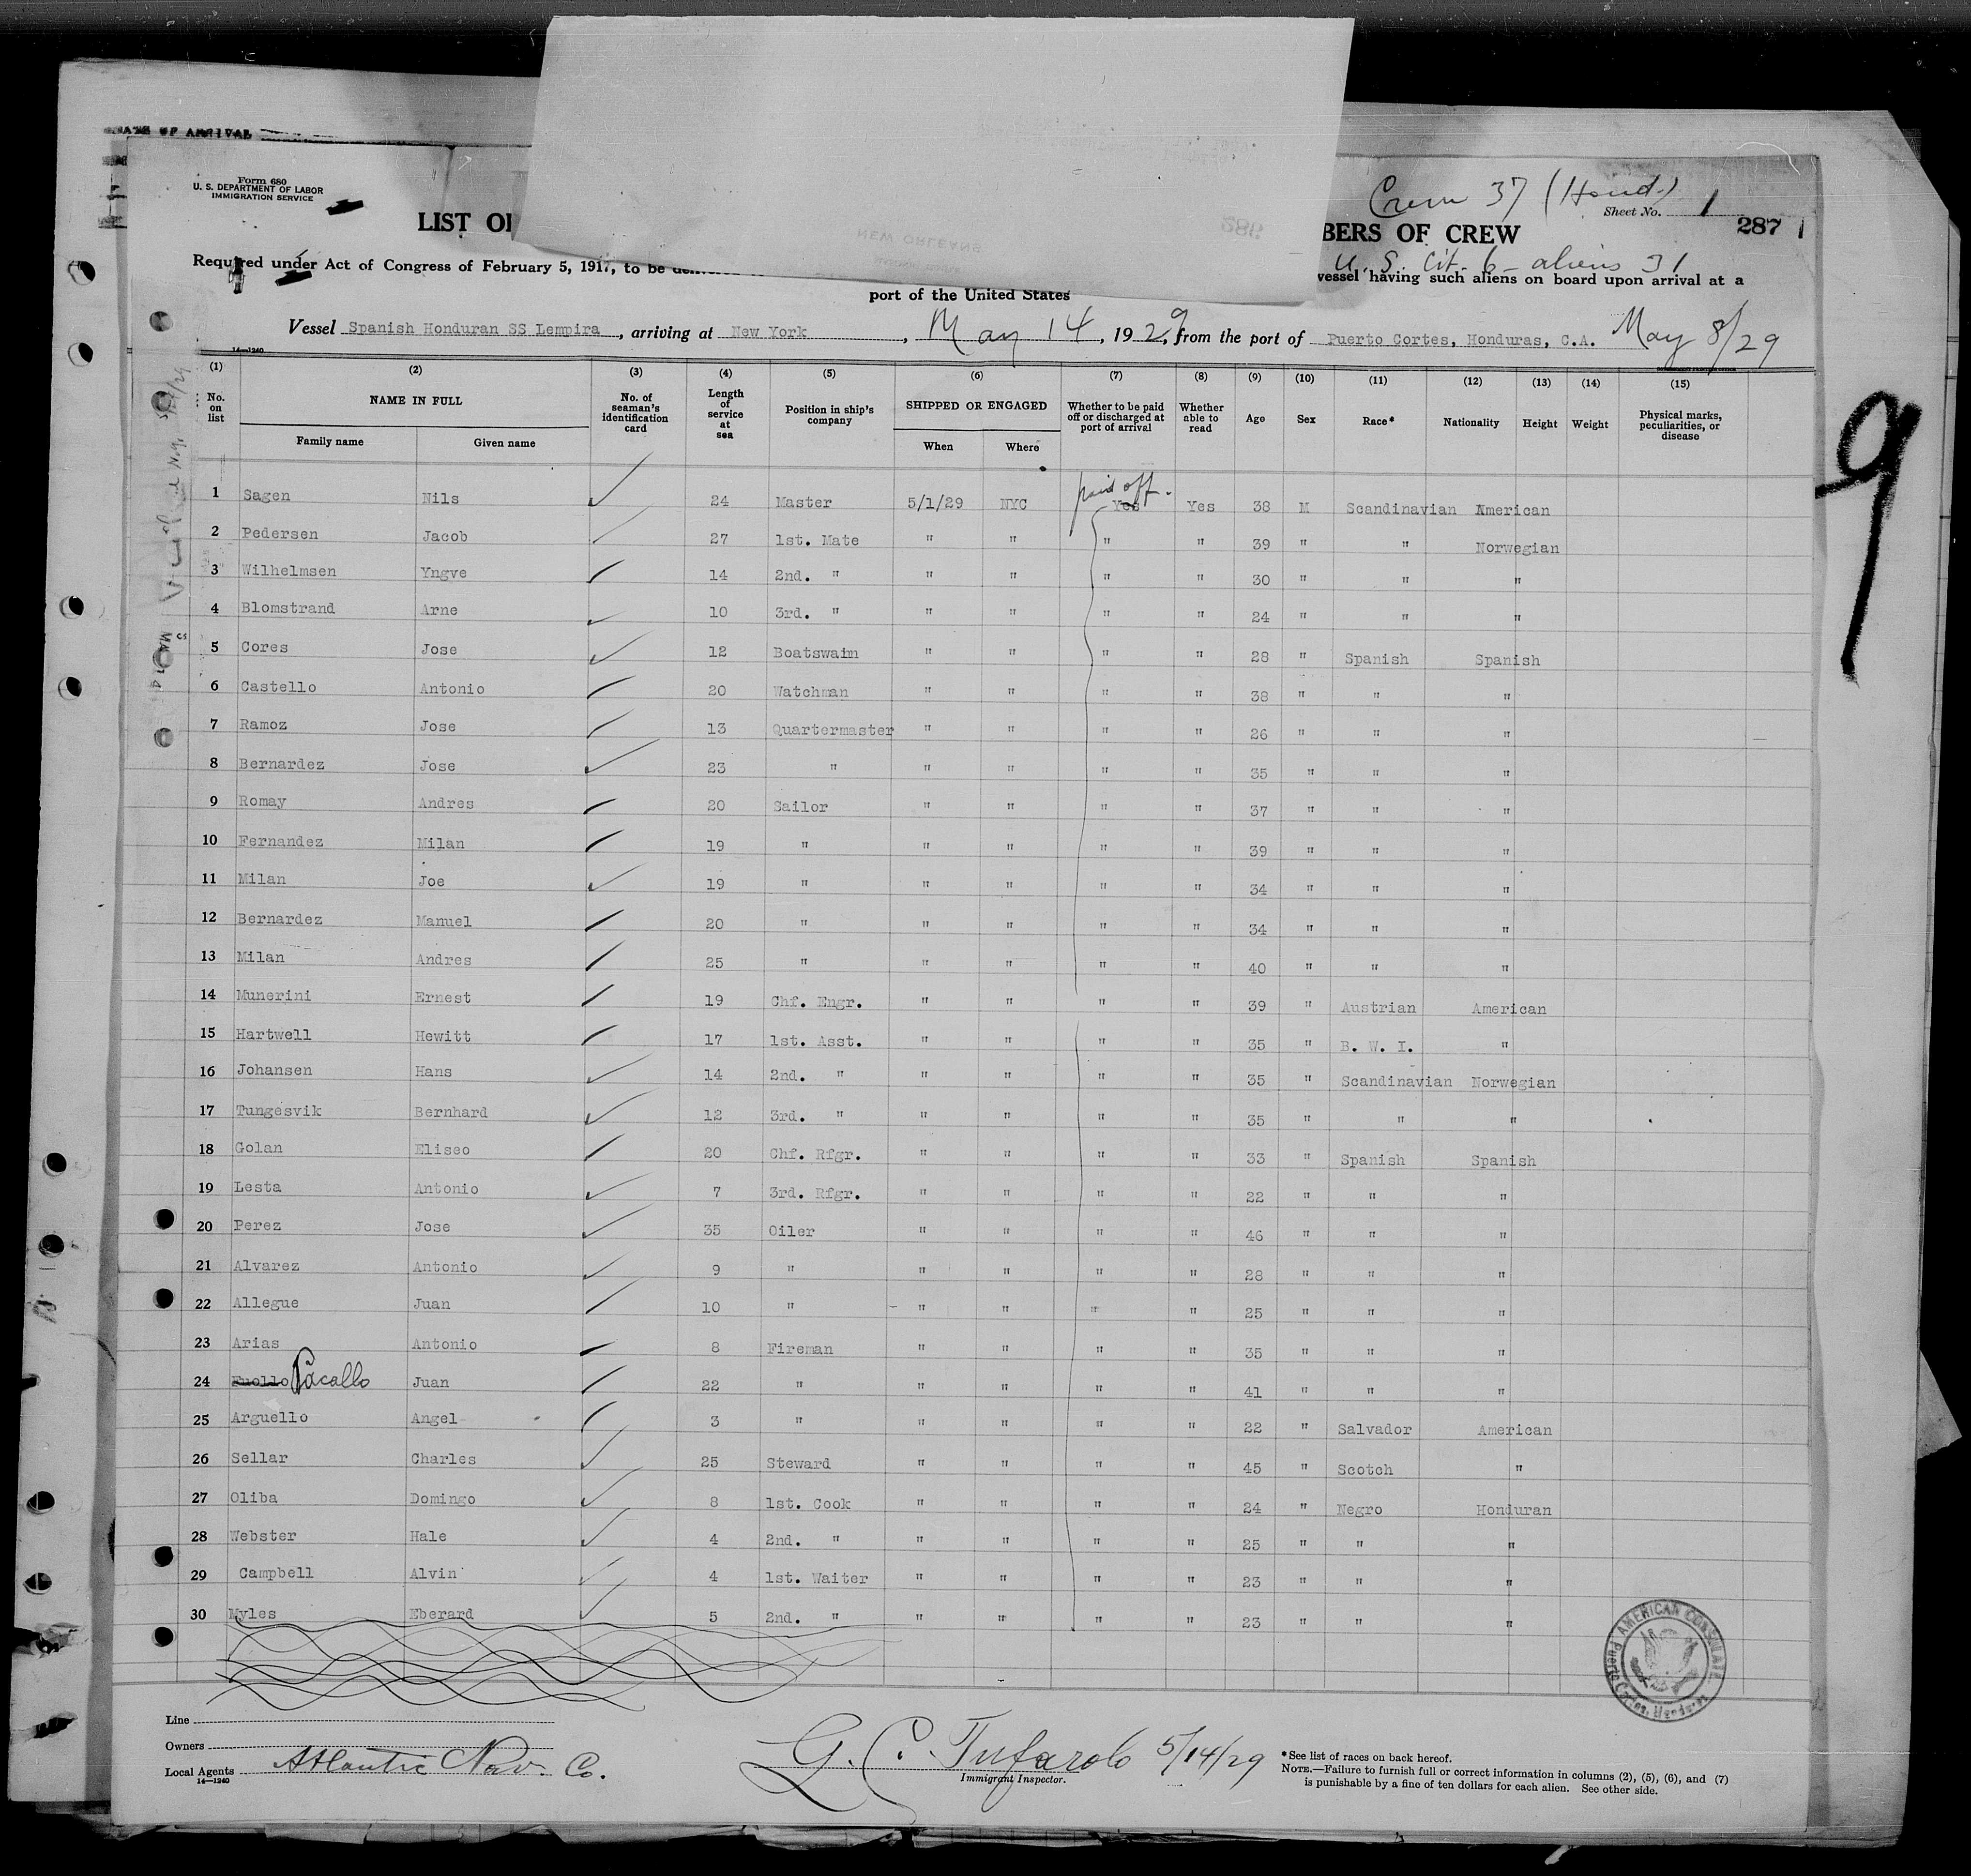 DATE OF ARRIVAL
Form 680
U. S. DEPARTMENT OF LABOR
IMMIGRATION SERVICE
Crew 37 (Hond.)
Sheet No. 1
287
LIST OF
BERS OF CREW
U. S. Cit. 6 - aliens 31
Required under Act of Congress of February 5, 1917, to be
vessel having such aliens on board upon arrival at a
port of the United States
NEW ORLEANS
286
Vessel Spanish Honduran SS Lempira, arriving at New York, May 14, 1929, from the port of Puerto Cortes, Honduras, C.A. May 8/29
14—1240
(1) (2) (3) (4) (5) (6) (7) (8) (9) (10) (11) (12) (13) (14) (15)
No. on list NAME IN FULL No. of seaman's identification card Length of service at sea Position in ship's company SHIPPED OR ENGAGED Whether to be paid off or discharged at port of arrival Whether able to read Age Sex Race* Nationality Height Weight Physical marks, peculiarities, or disease
Family name Given name When Where
paid off.
1 Sagen Nils 24 Master 5/1/29 NYC Yes Yes 38 M Scandinavian American
2 Pedersen Jacob 27 1st. Mate " " " " 39 " " Norwegian
3 Wilhelmsen Yngve 14 2nd. " " " " " 30 " " "
4 Blomstrand Arne 10 3rd. " " " " " 24 " " "
5 Cores Jose 12 Boatswain " " " " 28 " Spanish Spanish
6 Castello Antonio 20 Watchman " " " " 38 " " "
7 Ramoz Jose 13 Quartermaster " " " " 26 " " "
8 Bernardez Jose 23 " " " " " 35 " " "
9 Romay Andres 20 Sailor " " " " 37 " " "
10 Fernandez Milan 19 " " " " " 39 " " "
11 Milan Joe 19 " " " " " 34 " " "
12 Bernardez Manuel 20 " " " " " 34 " " "
13 Milan Andres 25 " " " " " 40 " " "
14 Munerini Ernest 19 Chf. Engr. " " " " 39 " Austrian American
15 Hartwell Hewitt 17 1st. Asst. " " " " 35 " B. W. I. "
16 Johansen Hans 14 2nd. " " " " " 35 " Scandinavian Norwegian
17 Tungesvik Bernhard 12 3rd. " " " " " 35 " " "
18 Golan Eliseo 20 Chf. Rfgr. " " " " 33 " Spanish Spanish
19 Lesta Antonio 7 3rd. Rfgr. " " " " 22 " " "
20 Perez Jose 35 Oiler " " " " 46 " " "
21 Alvarez Antonio 9 " " " " " 28 " " "
22 Allegue Juan 10 " " " " " 25 " " "
23 Arias Antonio 8 Fireman " " " " 35 " " "
24 Pacallo Juan 22 " " " " " 41 " " "
25 Arguello Angel 3 " " " " " 22 " Salvador American
26 Sellar Charles 25 Steward " " " " 45 " Scotch "
27 Oliba Domingo 8 1st. Cook " " " " 24 " Negro Honduran
28 Webster Hale 4 2nd. " " " " " 25 " " "
29 Campbell Alvin 4 1st. Waiter " " " " 23 " " "
30 Myles Eberard 5 2nd. " " " " " 23 " " "
9
AMERICAN CONSULATE
Puerto Cortes, Honduras
Line
Owners
Local Agents Atlantic Nav. Co.
14—1240
G. C. Tufarolo 5/14/29
Immigrant Inspector.
*See list of races on back hereof.
NOTE.—Failure to furnish full or correct information in columns (2), (5), (6), and (7)
is punishable by a fine of ten dollars for each alien. See other side.